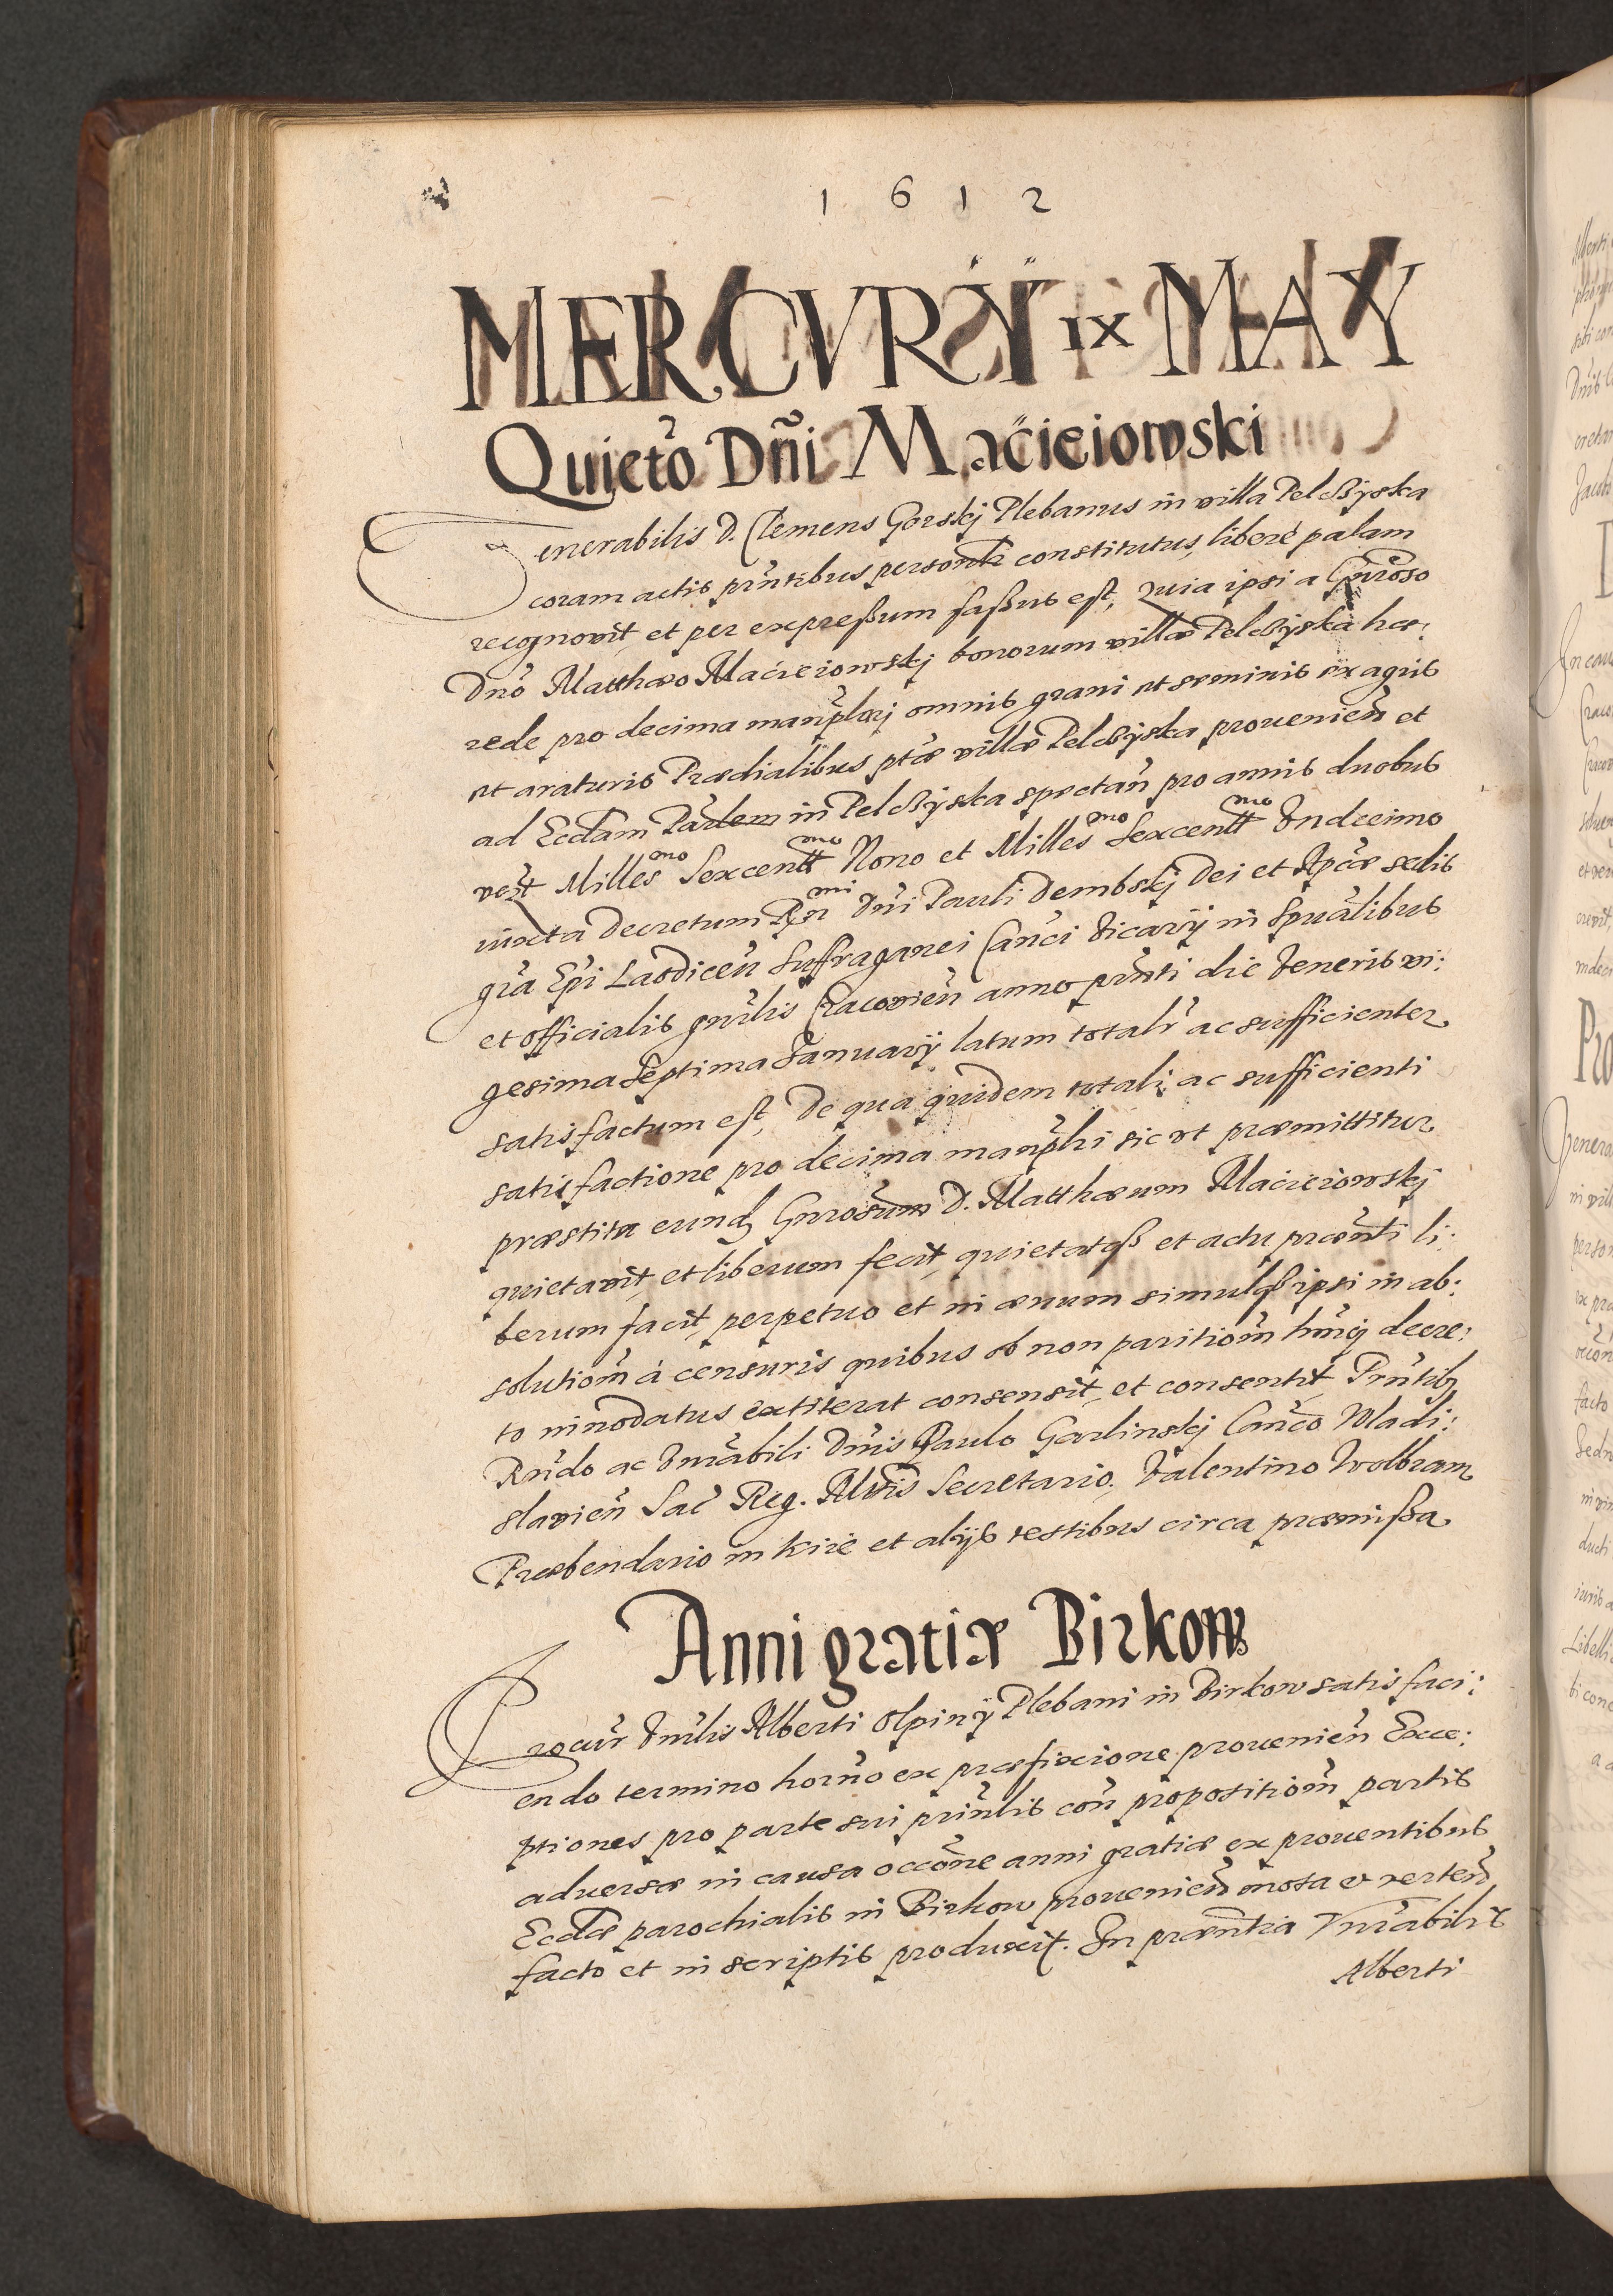 1612
MERCVRY IX MAY
Quieto Dñi Macieiowski
Venerabilis D. Clemens Gorskj Plebanus in villa Pelcżyska
coram actis pñtibus personlr constitutus, liberè palam
recognovit, et per expreßum faßus est, quia ipsi a Gñroso
Dnõ Matthæo Macieiowskj bonorum villæ Pelcżyska hæ:
rede pro decima manīplarj omnis grani et seminis ex agris
et araturis Prædialibus ptæ villæ Pelcżyska prouenieñ et
ad Eccłam Parłem in Pelcżyska spectañ pro annis duobus
vełt Milles̃ᵐᵒ Sexcentᵐᵒ Nono et Milles̃ᵐᵒ Sexcentᵐᵒ Vndecimo
iuxta decretum Rñᵐⁱ Dñi Pauli Dembskj Dei et Apcæ sedis
grã Epĩ Laodiceñ Suffraganei Cañci Vicarÿ in Spũalibus
et officialis gñrlis Cracovieñ anno pñti die Veneris vi:
gesima Septima Januarÿ latum totalr̃ ac sufficienter
satisfactum est, De qua quidem totali ac sufficienti
satisfactione pro decima manĩplri sic ut præmittitur
præstita eundẽ Gñrosum D. Matthæum Macieiowskj
quietavit, et liberum fecit, quietatqß et actu præñti li:
berum facit, perpetuo et in æuum simulqß ipsi in ab:
solutiom̃ à censuris quibus ob non paritiom̃ hm̃oj decre:
to innodatus extiterat consensit, et consentit Pñtibꝫ
Rñdo ac Vñrabili Dñis Paulo Garlinskj Cañco Wladi:
slavień Sac̃ Reg. Mtis Secretario, Valentino Wolbram
Præbendario in Kiie et alÿs testibus circa præmißa
Anni gratiæ Birkow
Procur̃ Vñrlis Alberti Olpinÿ Plebani in Birkow satisfaci:
endo termino horñо ex præfixione prouenieñ Exce:
ptiones pro parte sui prin̄lis coñ propositiom̃ partis
aduersæ in causa occõne anni gratiæ ex prouentibus
Eccłæ parochialis in Birkow prouenieñ mota et verteñ
facto et in scriptis produxit. In præntia Vñrabilis
Alberti